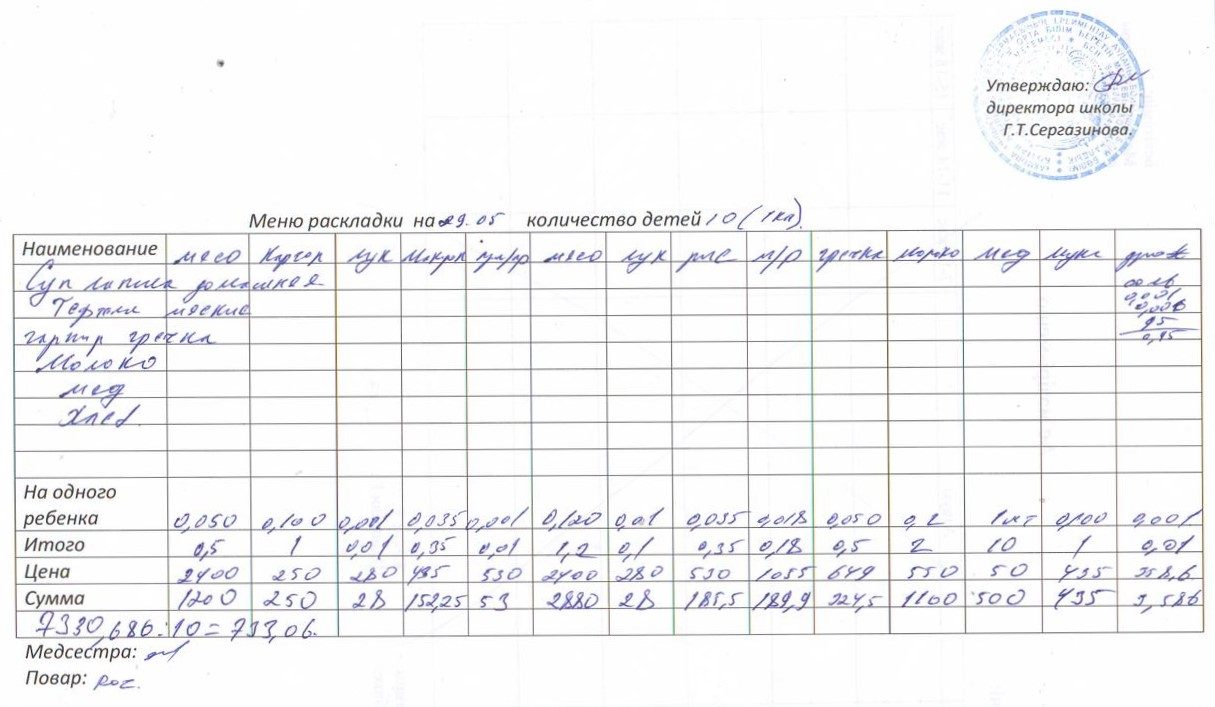 Утверждаю:
директора школы
Г.Т.Сергазинова.
Меню раскладки на 29.05 количество детей 10 (1 кл).
Наименование мясо Картоф лук Макарон мясо лук рис т/р гречка молоко мед мука
Суп лапша домашняя соль
Тефтели мясные 0,001
гарнир гречка
Молоко
мед
Хлеб.
На одного
ребенка 0,050 0,100 0,001 0,035 0,001 0,120 0,01 0,035 0,018 0,050 0,2 1шт 0,100 0,001
Итого 0,5 1 0,01 0,35 0,01 1,2 0,1 0,35 0,18 0,5 2 10 1 0,01
Цена 2400 250 280 435 530 2400 280 530 1055 649 550 50 435 358,6
Сумма 1200 250 28 152,25 53 2880 28 185,5 189,9 324,5 1100 500 435 3,586
7330,686:10=733,06.
Медсестра:
Повар: